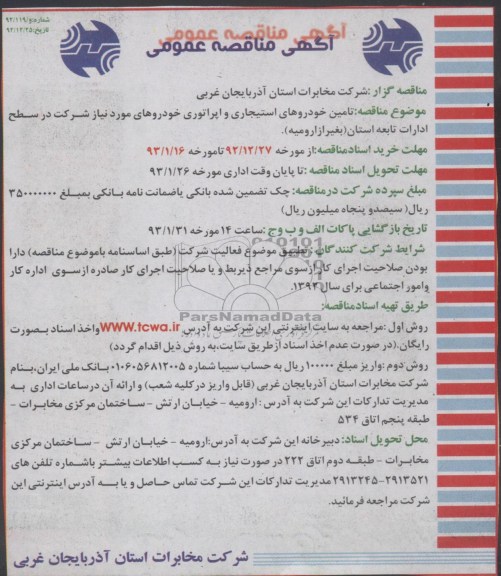 شماره: و/۹۲/۱۱۹
تاریخ: ۹۲/۱۲/۲۵
آگهی مناقصه عمومی
مناقصه گزار: شرکت مخابرات استان آذربایجان غربی
موضوع مناقصه: تامین خودروهای استیجاری و اپراتوری خودروهای مورد نیاز شرکت در سطح
ادارات تابعه استان(بغیرازارومیه).
مهلت خرید اسنادمناقصه: از مورخه ۹۲/۱۲/۲۷ تامورخه ۹۳/۱/۱۶
مهلت تحویل اسناد مناقصه : تا پایان وقت اداری مورخه ۹۳/۱/۲۶
مبلغ سپرده شرکت در مناقصه: چک تضمین شده بانکی یاضمانت نامه بانکی بمبلغ ۳۵۰۰۰۰۰۰۰
ریال( سیصدو پنجاه میلیون ریال)
تاریخ بازگشایی پاکات الف و ب وج : ساعت ۱۴ مورخه ۹۳/۱/۳۱
شرایط شرکت کنندگان : تطبیق موضوع فعالیت شرکت (طبق اساسنامه باموضوع مناقصه) دارا
بودن صلاحیت اجرای کار ازسوی مراجع ذیربط و یا صلاحیت اجرای کار صادره ازسوی اداره کار
وامور اجتماعی برای سال ۱۳۹۳.
طریق تهیه اسنادمناقصه:
روش اول : مراجعه به سایت اینترنتی این شرکت به آدرس www.tcwa.ir واخذ اسناد بصورت
رایگان.(در صورت عدم اخذ اسناد ازطریق سایت،به روش ذیل اقدام گردد)
روش دوم :واریز مبلغ ۱۰۰۰۰۰ ریال به حساب سیبا شماره ۰۱۰۶۰۵۶۸۱۲۰۰۵ بانک ملی ایران،بنام
شرکت مخابرات استان آذربایجان غربی (قابل واریز درکلیه شعب) و ارائه آن درساعات اداری به
مدیریت تدارکات این شرکت به آدرس : ارومیه - خیابان ارتش - ساختمان مرکزی مخابرات -
طبقه پنجم اتاق ۵۳۴
محل تحویل اسناد: دبیرخانه این شرکت به آدرس:ارومیه - خیابان ارتش - ساختمان مرکزی
مخابرات - طبقه دوم اتاق ۲۲۲ در صورت نیاز به کسب اطلاعات بیشتر باشماره تلفن های
۲۹۱۳۵۲۱-۲۹۱۳۲۴۵ مدیریت تدارکات این شرکت تماس حاصل و یا به آدرس اینترنتی این
شرکت مراجعه فرمائید.
شرکت مخابرات استان آذربایجان غربی
ParsNamadData